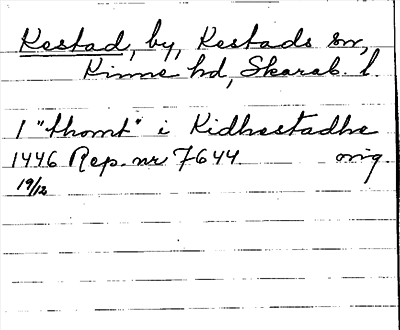 Kestad, by, Kestads sn,
Kinne hd, Skarab. l.
1 "thomt" i Kidhestadhe
1446 Rep. nr 7644. orig.
19/12